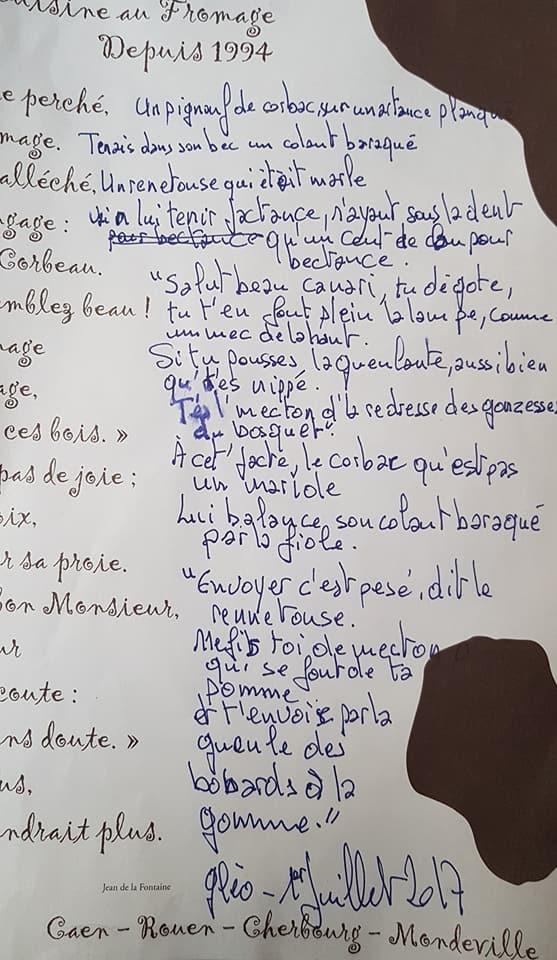 uisine au Fromage
Depuis 1994
e perché, Un pignouf de corbac, sur un artance planqué
mage. Tenais dans son bec un colant baraqué
alléché, Un renetouse qui étoit marle
gage : lui tenir jactance, n'ayant sous la dent
pour bectance qu'un ceut de clou pour
Corbeau. bectance.
"Salut beau canari, tu dégote,
mblez beau ! tu t'en fout plein la lampe, comme
un mec de la haut.
mage Si tu pousses la gueulante, aussi bien
age, qu't'es nippé.
T'es l'mecton d'la redresse des gonzesse
ces bois. » du bosquet".
pas de joie ; À cet' jacte, le corbac qu'est pas
un mariole
ix, Lui balance son colant baraqué
par la fiole.
r sa proie.
"Envoyer c'est pesé, dit le
on Monsieur, rennetouse.
ur Mefis toi de mecton
qui se fout de ta
coute : pomme
et t'envoie par la
ns doute. » gueule des
us, bobards à la
ndrait plus. gomme."
Jean de la Fontaine
gléo - 1er juillet 2017
Caen - Rouen - Cherbourg - Mondeville